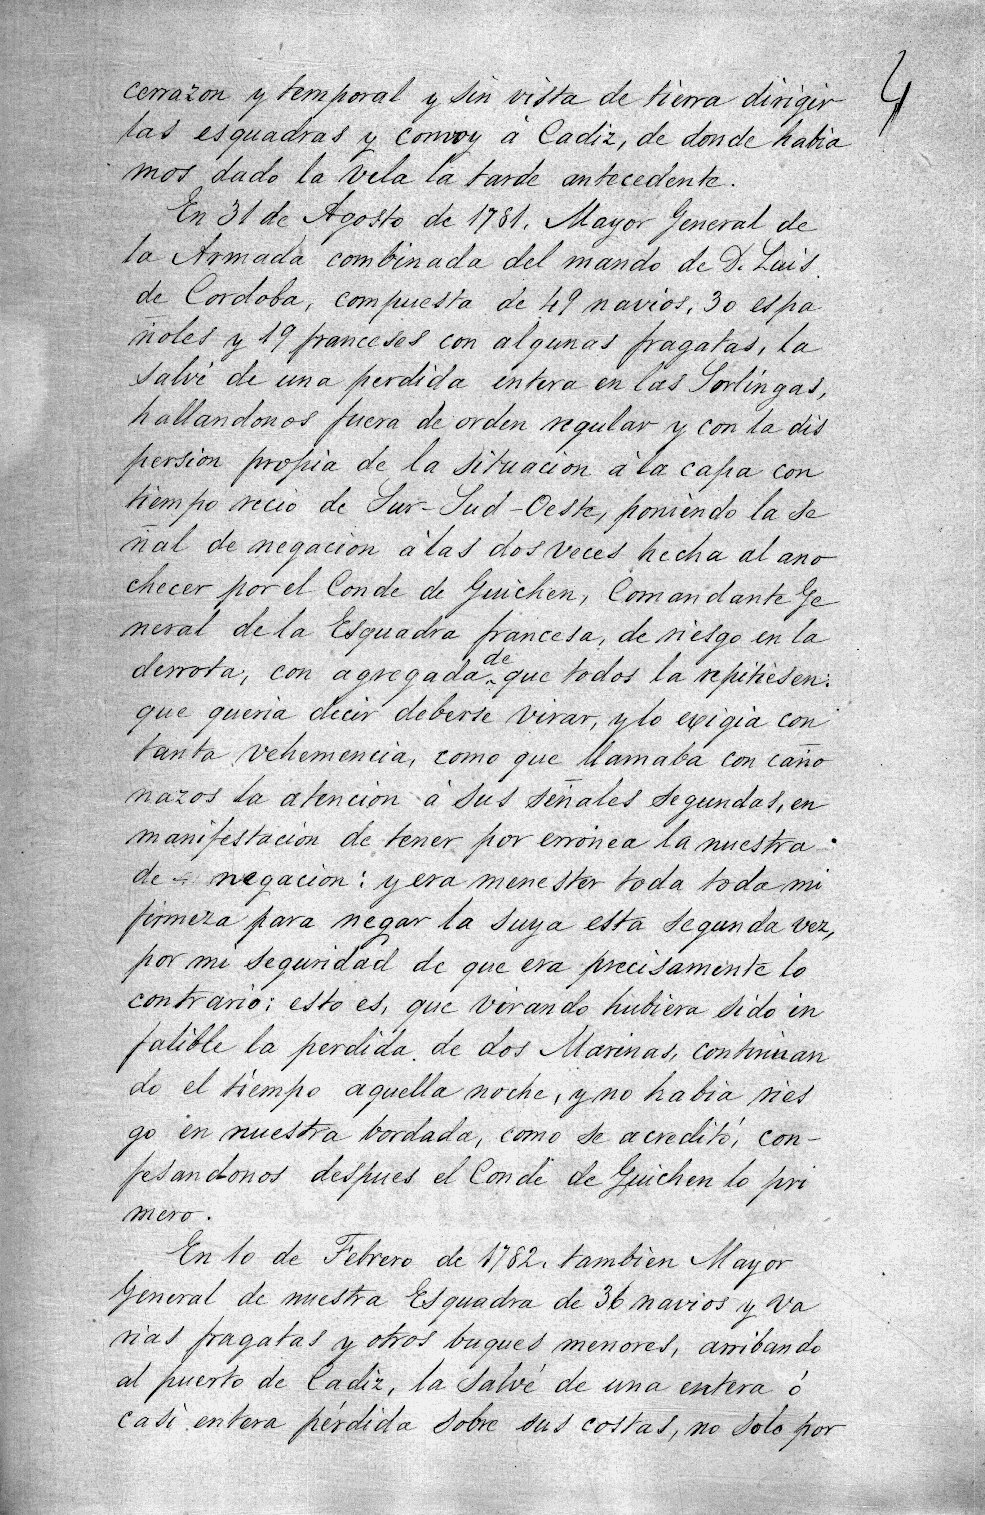 4
cerrazon y temporal y sin vista de tierra dirigir
las esquadras y convoy á Cadiz, de donde habia
mos dado la vela la tarde antecedente.
En 31 de Agosto de 1781. Mayor General de
la Armada combinada del mando de D. Luis
de Cordoba, compuesta de 49 navios, 30 espa
ñoles y 19 franceses con algunas fragatas, la
salvé de una perdida entera en las Sorlingas,
hallandonos fuera de orden regular y con la dis
persion propia de la situacion á la capa con
tiempo recio de Sur-Sud-Oeste, poniendo la se
ñal de negacion á las dos veces hecha al ano
checer por el Conde de Guichen, Comandante Ge
neral de la Esquadra francesa, de riesgo en la
derrota, con agregada de que todos la repitiesen:
que queria decir deberse virar, y lo exigia con
tanta vehemencia, como que llamaba con caño
nazos la atencion á sus señales segundas, en
manifestacion de tener por erronea la nuestra
de negacion: y era menester toda toda mi
firmeza para negar la suya esta segunda vez,
por mi seguridad de que era precisamente lo
contrario: esto es, que virando hubiera sido in
falible la perdida de dos Marinas, continuan
do el tiempo aquella noche, y no habia ries
go en nuestra bordada, como se acreditó, con-
fesandonos despues el Conde de Guichen lo pri
mero.
En 10 de Febrero de 1782. tambien Mayor
General de nuestra Esquadra de 36 navios y va
rias fragatas y otros buques menores, arribando
al puerto de Cadiz, la salvé de una entera ó
casi entera pérdida sobre sus costas, no solo por